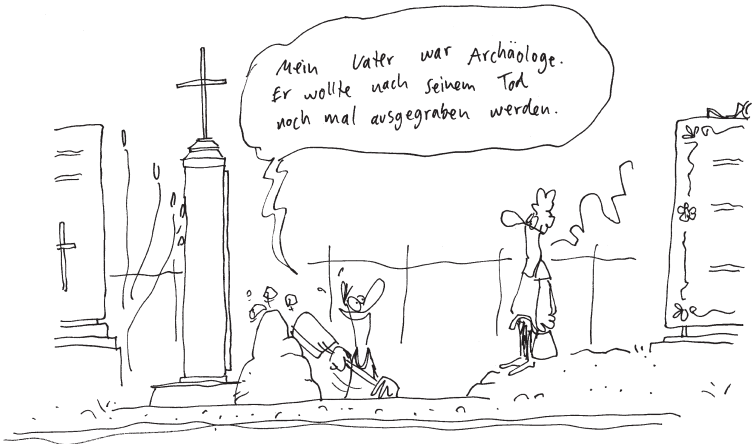 Mein Vater war Archäologe.
Er wollte nach seinem Tod
noch mal ausgegraben werden.